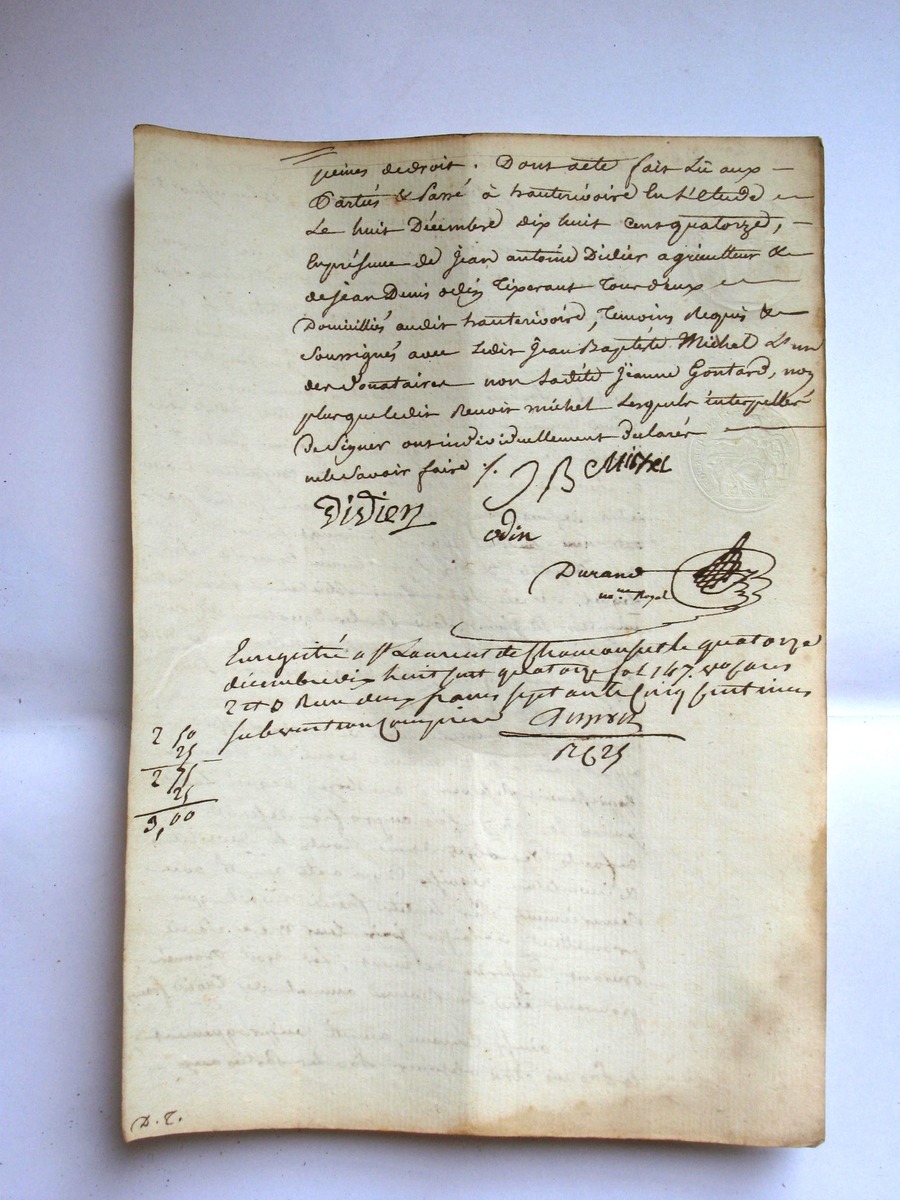 peines de droit. Dont acte fait Lû aux
Parties & Passé à hauterivoire En L'étude
Le huit Décembre dix huit cent quatorze,
En présence de Jean antoine Didier agriculteur &
de jean Denis odin Tixerant Tous deux
Domiciliés audit hauterivoire, Temoins Requis &
Soussignés avec Ledit Jean Baptiste Michel L'un
des Donataires non Ladite Jeanne Gontard, non
plus que ledit Benoit michel Lesquels interpellés
De Signer ont individuellement Déclarés
ne le Savoir faire ./.
J B Michel
Didier
odin
Durand
no.re Royal
Enregistré a St Laurent de Chamousset le quatorze
décembre dix huit cent quatorze fol 147. vo cases
2 et 3 Reçu deux francs septante Cinq Centimes
subvention Comprise
2 50
25
2 75
25
3,00
D. T.